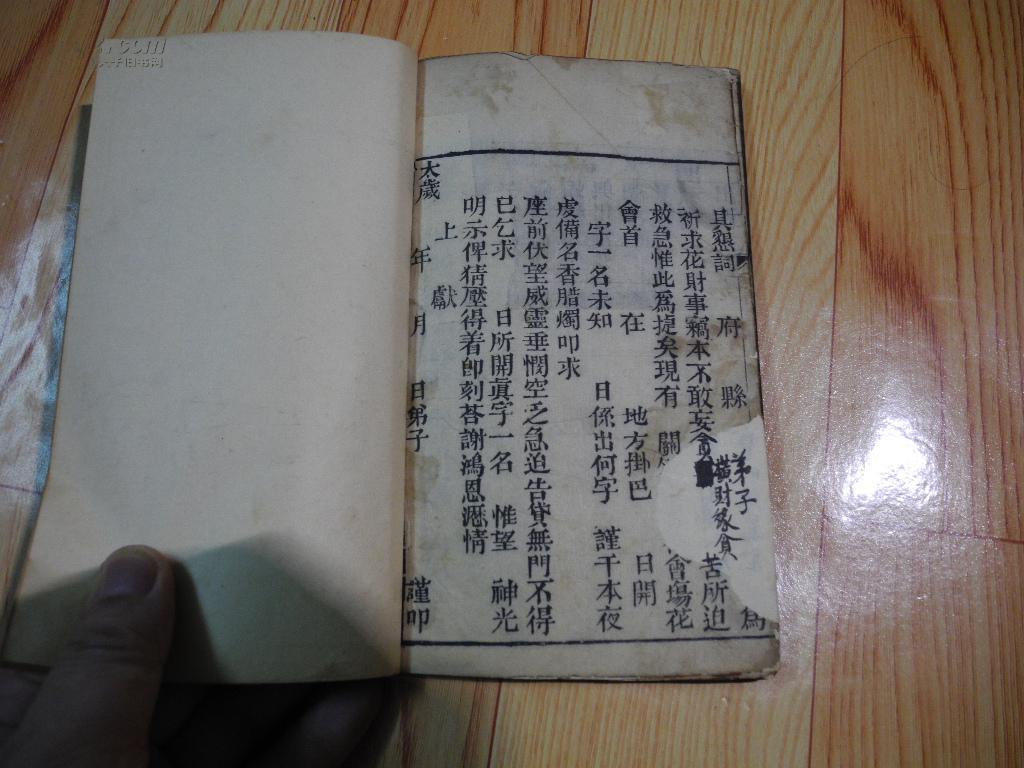 具懇詞 府 縣 弟子 為
祈求花財事竊本不敢妄貪橫財緣貪苦所迫
救急惟此為提矣現有 關 會場花
會首 在 地方掛巴 日開
字一名未知 日係出何字 謹于本夜
虔備名香腊燭叩求
座前伏望威靈垂憫空乏急迫告貸無門不得
已乞求 日所開眞字一名 惟望 神光
明示俾猜壓得着卽刻荅謝鴻恩慂情
上獻
大歲 年 月 日弟子 謹叩
.com